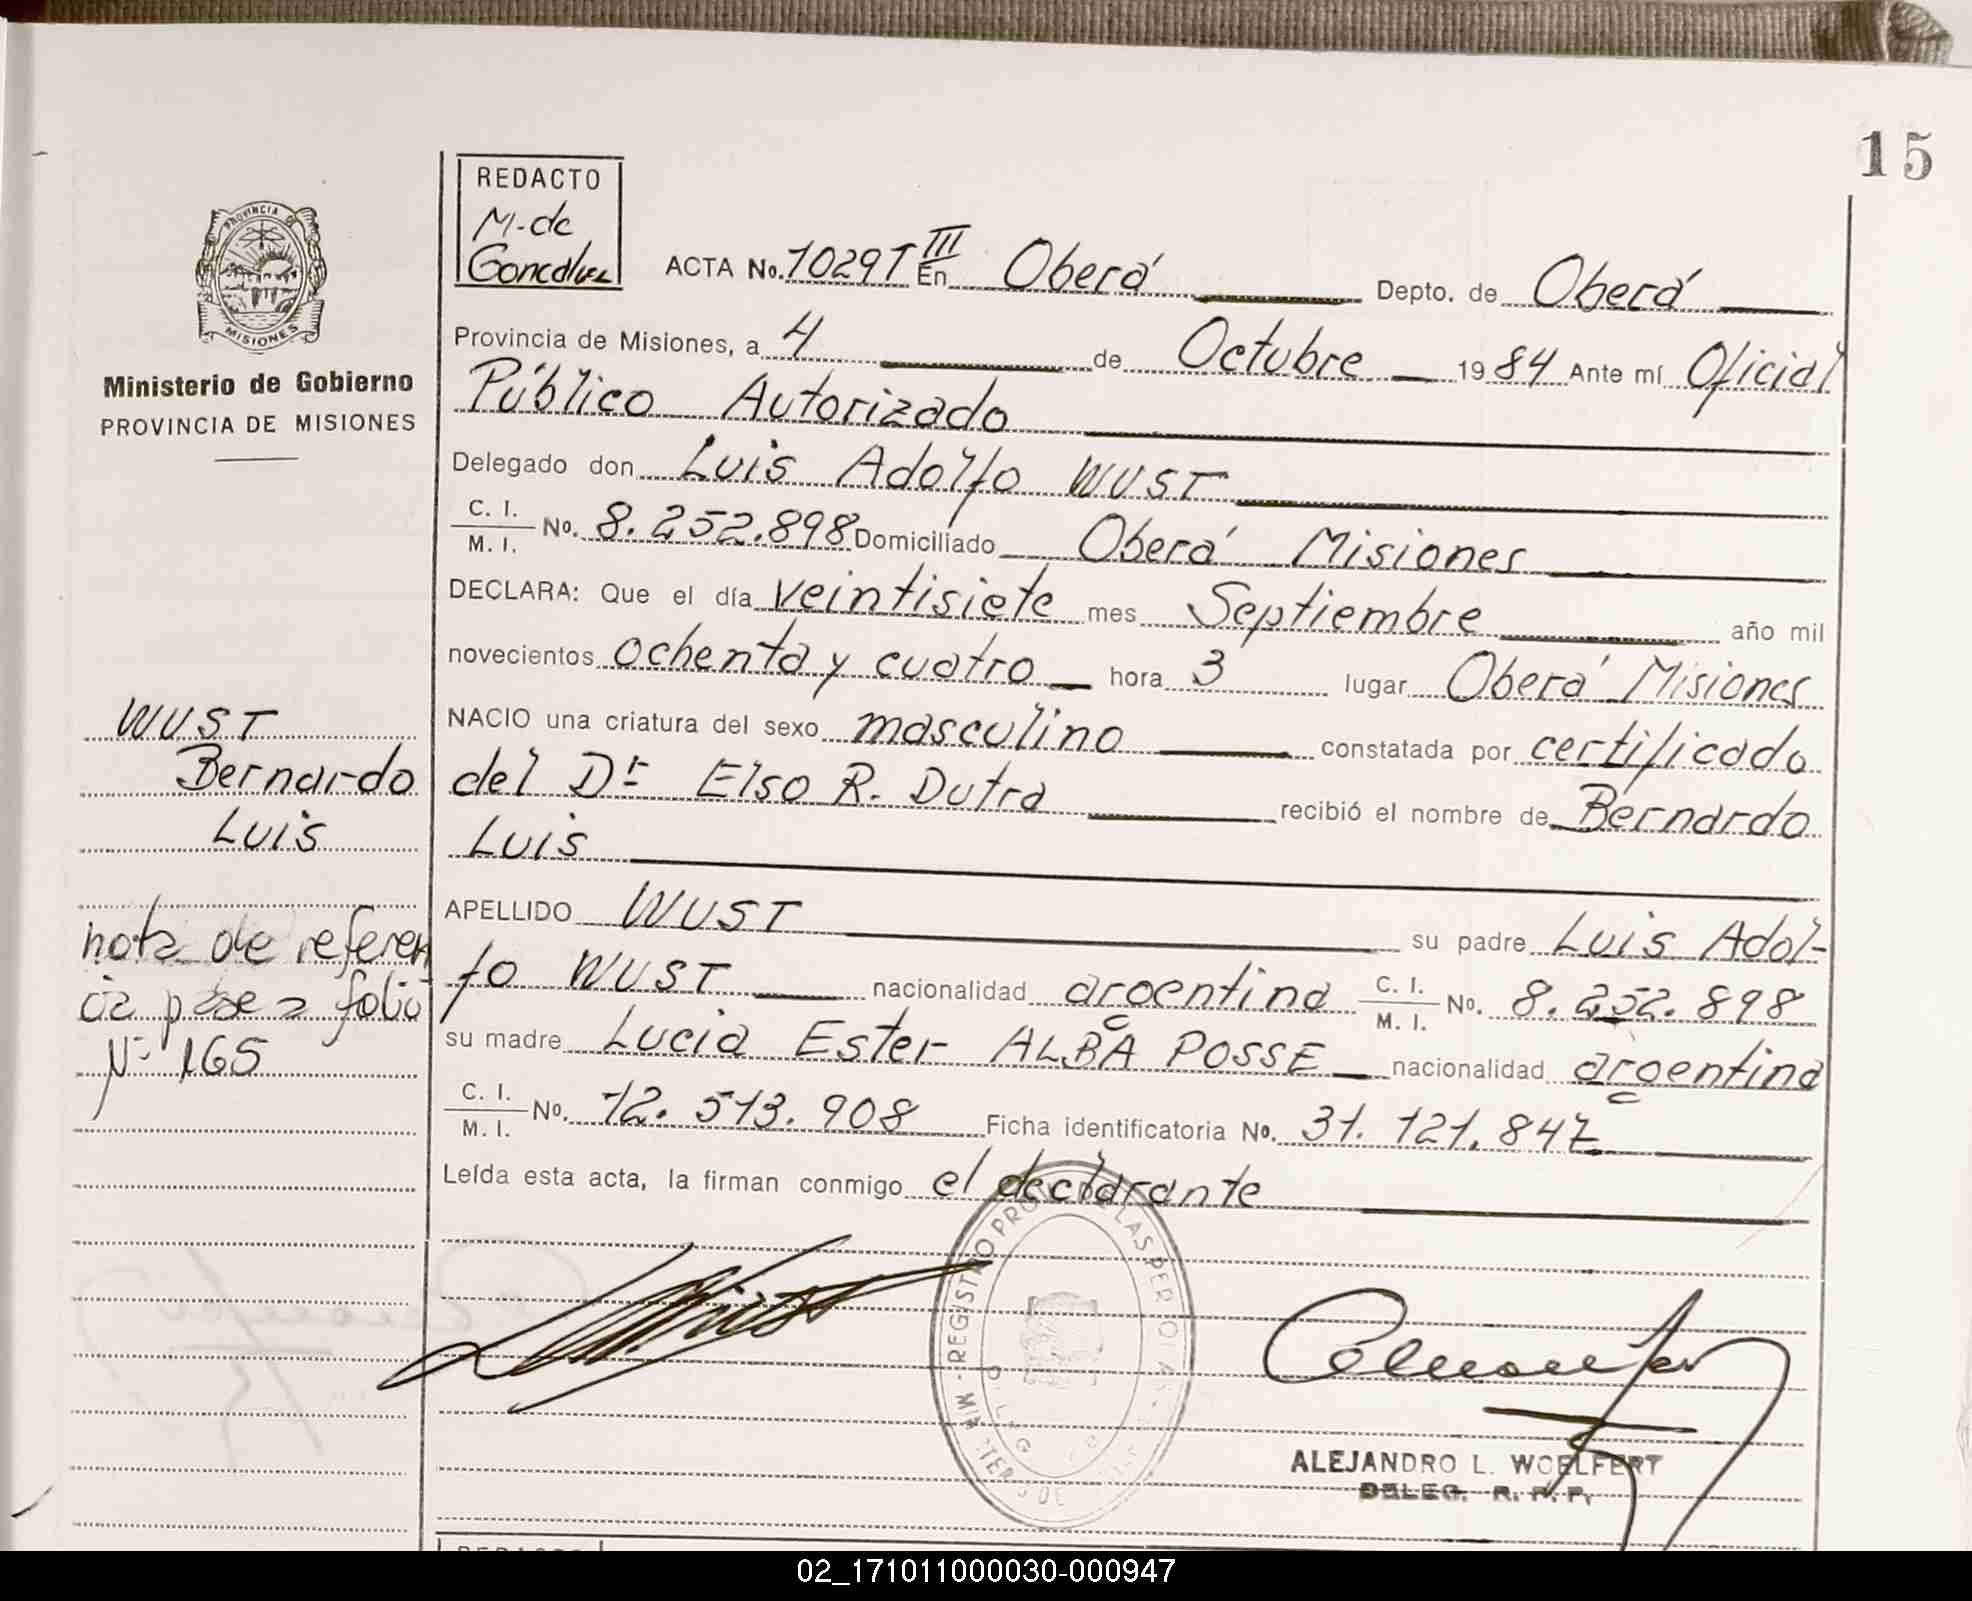 15
REDACTO
M. de
Goncalvez
PROVINCIA DE
MISIONES
Ministerio de Gobierno
PROVINCIA DE MISIONES
ACTA No. 1029 T III En Oberá Depto. de Oberá
Provincia de Misiones, a 4 de Octubre 1984 Ante mí Oficial
Público Autorizado
Delegado don Luis Adolfo WUST
C. I.
M. I. No. 8.252.898 Domiciliado Oberá Misiones
DECLARA: Que el día veintisiete mes Septiembre año mil
novecientos ochenta y cuatro hora 3 lugar Oberá Misiones
NACIO una criatura del sexo masculino constatada por certificado
del Dr Elso R. Dutra recibió el nombre de Bernardo
Luis
APELLIDO WUST su padre Luis Adol-
fo WUST nacionalidad argentina C. I. M. I. No. 8.252.898
su madre Lucia Ester ALBA POSSE nacionalidad argentina
C. I.
M. I. No. 12.513.908 Ficha identificatoria No. 31.121.847
Leída esta acta, la firman conmigo el declarante
WUST
Bernardo
Luis
nota de referen
cia pase a folio
Nº 165
ALEJANDRO L. WOELFERT
DELEG. R. P. P.
02_171011000030-000947